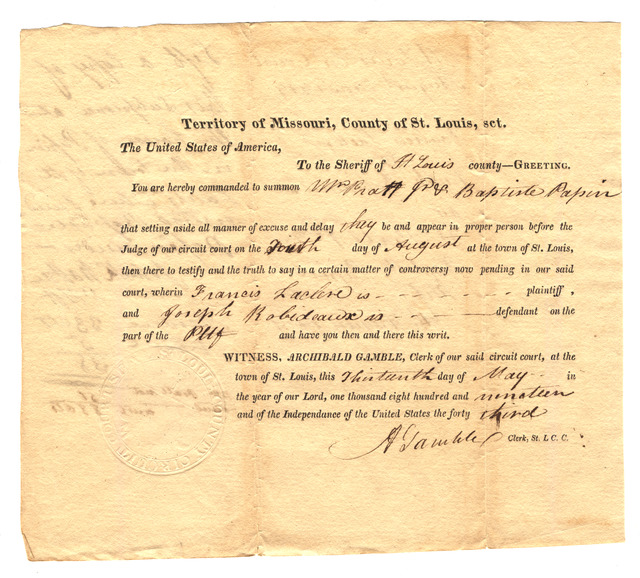 Territory of Missouri, County of St. Louis, sct.
The United States of America,
To the Sheriff of St Louis county—GREETING.
You are hereby commanded to summon Wm Pratt Jr & Baptiste Papin
that setting aside all manner of excuse and delay they be and appear in proper person before the
Judge of our circuit court on the day of August at the town of St. Louis,
then there to testify and the truth to say in a certain matter of controversy now pending in our said
court, wherin Francis Laclere is - - - - - - - plaintiff,
and Joseph Robideaux is - - - - - defendant on the
part of the Pltf and have you then and there this writ.
WITNESS, ARCHIBALD GAMBLE, Clerk of our said circuit court, at the
town of St. Louis, this Thirteenth day of May - - in
the year of our Lord, one thousand eight hundred and nineteen
and of the Independance of the United States the forty third
A Gamble Clerk, St. L C. C.